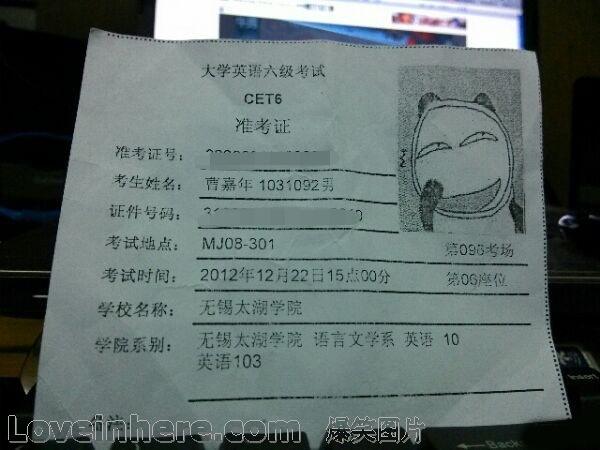 大学英语六级考试
CET6
准考证
准考证号:
考生姓名: 曹嘉年 1031092男
证件号码:
考试地点: MJ08-301 第096考场
考试时间: 2012年12月22日15点00分 第06座位
学校名称: 无锡太湖学院
学院系别: 无锡太湖学院 语言文学系 英语 10
英语103
Loveinhere.com 爆笑图片
Insert
Back